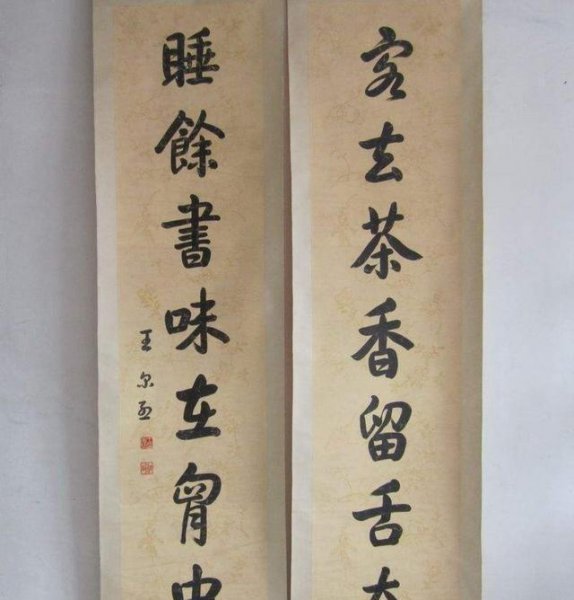 客去茶香留舌本
睡餘書味在胷中
王尔烈